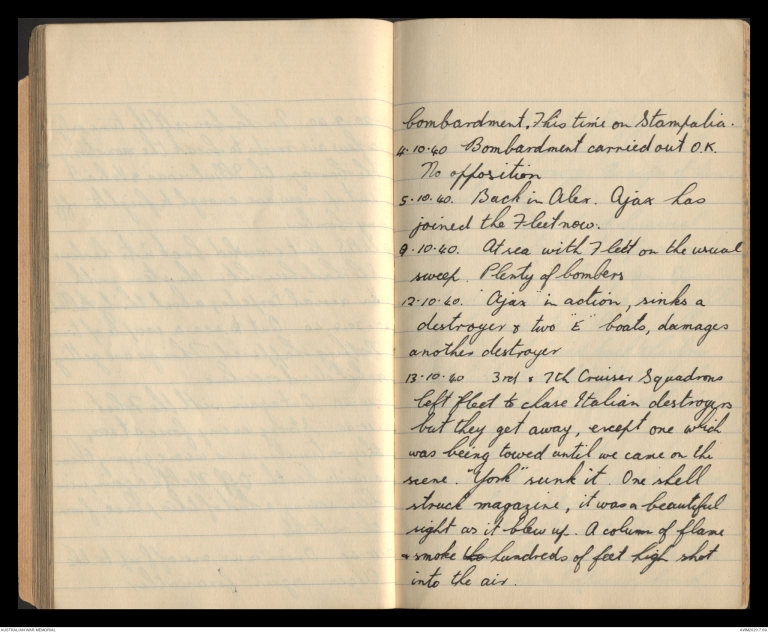 bombardment. This time on Stampalia.
4.10.40 Bombardment carried out O.K.
No opposition
5.10.40. Back in Alex. Ajax has
joined the Fleet now.
9.10.40. At sea with Fleet on the usual
sweep. Plenty of bombers
12.10.40. "Ajax" in action, sinks a
destroyer & two "E" boats, damages
another destroyer
13.10.40 3rd & 7th Cruiser Squadrons
left fleet to chase Italian destroyers
but they get away, except one which
was being towed until we came on the
scene. "York" sunk it. One shell
struck magazine, it was a beautiful
sight as it blew up. A column of flame
& smoke hundreds of feet high shot
into the air.
AUSTRALIAN WAR MEMORIAL